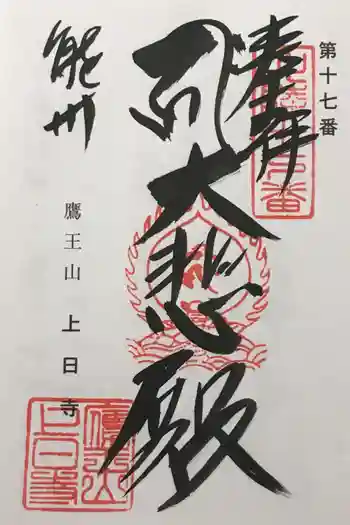 第十七番
奉拝
大悲殿
能州
鷹王山 上日寺